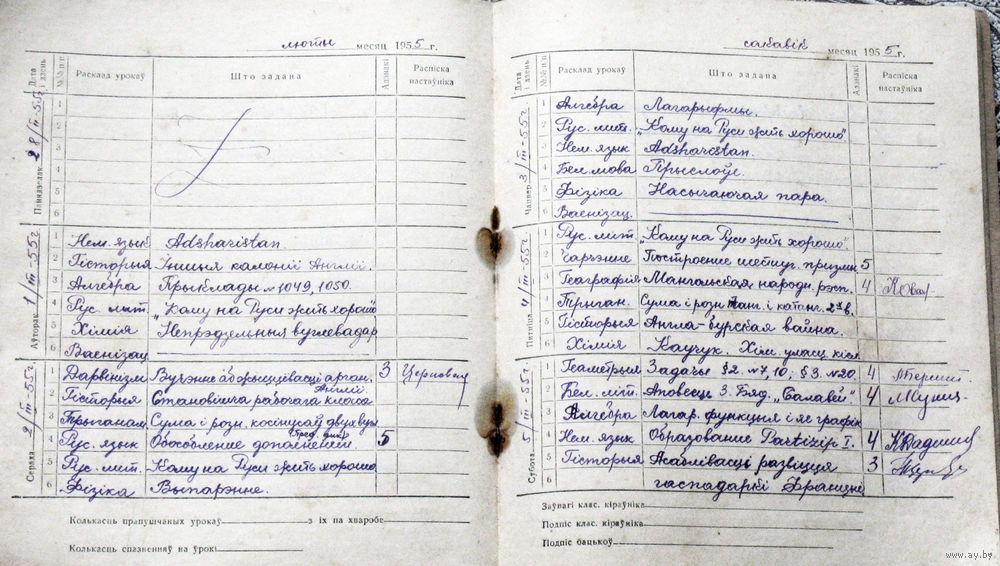 люты месяц 1955 г.
Дата і дзень №№ п/п Расклад урокаў Што задана Адзнакі Распіска настаўніка
Панядзелак 28/II-55г.
1
2
3
4
5
6
Аўторак 1/III-55г.
1 Нем. язык Adsharistan.
2 Гісторыя Іншыя калоніі Англіі.
3 Алгебра Прыклады №1049, 1050.
4 Рус. лит. „Кому на Руси жить хорошо"
5 Хімія Непрэдзельныя вуглевадар.
6 Ваенізац.
Серада 2/III-55г.
1 Дарвінізм Вучэнне аб арган. 3
Англіі
2 Гісторыя Становішча рабочага класса
3 Трыганам. Сума і розн. косінусаў двух вугл
4 Рус. язык Обособление дополнений 5
5 Рус. лит. Кому на Руси жить хорошо
6 Фізіка Выпарэнне.
Колькасць прапушчаных урокаў з іх па хваробе
Колькасць спазненняў на ўрокі
сакавік месяц 1955 г.
Дата і дзень №№ п/п Расклад урокаў Што задана Адзнакі Распіска настаўніка
Чацвер 3/III-55г.
1 Алгебра Лагарыфмы.
2 Рус. лит. „Кому на Руси жить хорошо"
3 Нем. язык Adsharistan.
4 Бел. мова Прыслоўе.
5 Фізіка Насычаючая пара.
6 Ваенізац.
Пятніца 4/III-55г.
1 Рус. лит. „Кому на Руси жить хорошо"
2 Чарчэнне Построение шестиуг. призмы 5
3 Географія Мангольская народн. рэсп. 4
4 Трыган. Сума і розн. тан. і катанг. 2х в.
5 Гісторыя Англа-бурская вайна.
6 Хімія Каучук. Хім. уласц.
Субота 5/III-55г.
1 Геаметрыя Задачы §2. №7, 10; §3. №20. 4
2 Бел. літ. Аповесць З. Бяд. „Салавей" 4
3 Алгебра Лагар. функция і яе графік
4 Нем. язык Образование Partizip I. 4
5 Гісторыя Асаблівасці развіцця 3
6 гаспадаркі Францыі
Заўвагі клас. кіраўніка
Подпіс клас. кіраўніка
Подпіс бацькоў
www.ay.by